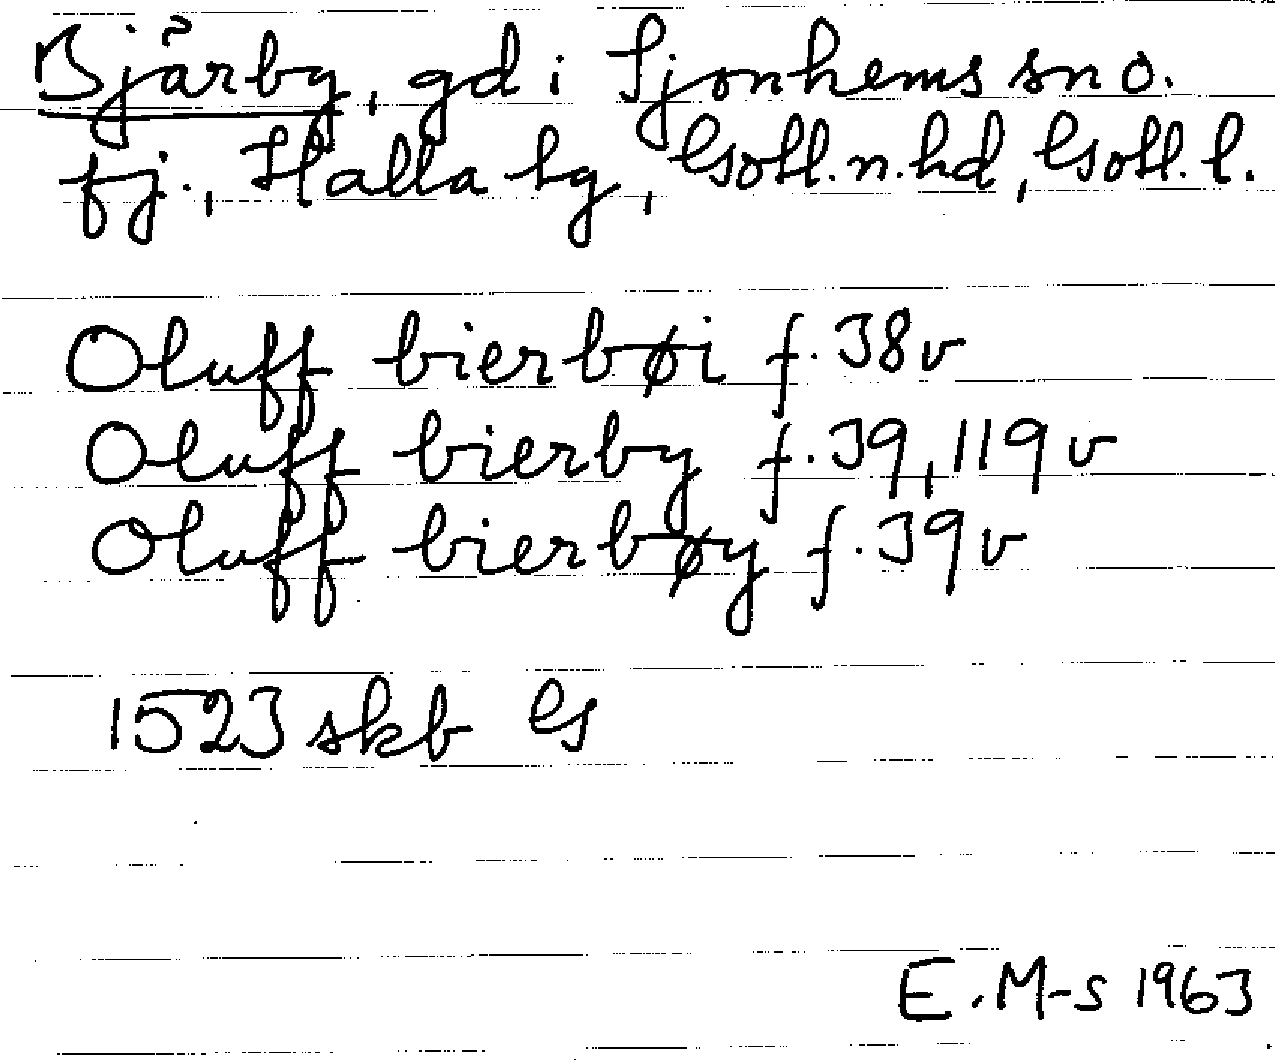 Bjärby, gd i Sjonhems sn o.
fj., Halla hg, Gotl. n. hd, Gotl. l.
Oluff bierbøi f. 38v
Oluff bierby f. 39, 119v
Oluff bierbøy f. 39v
1523 skb G
E. M-s 1963